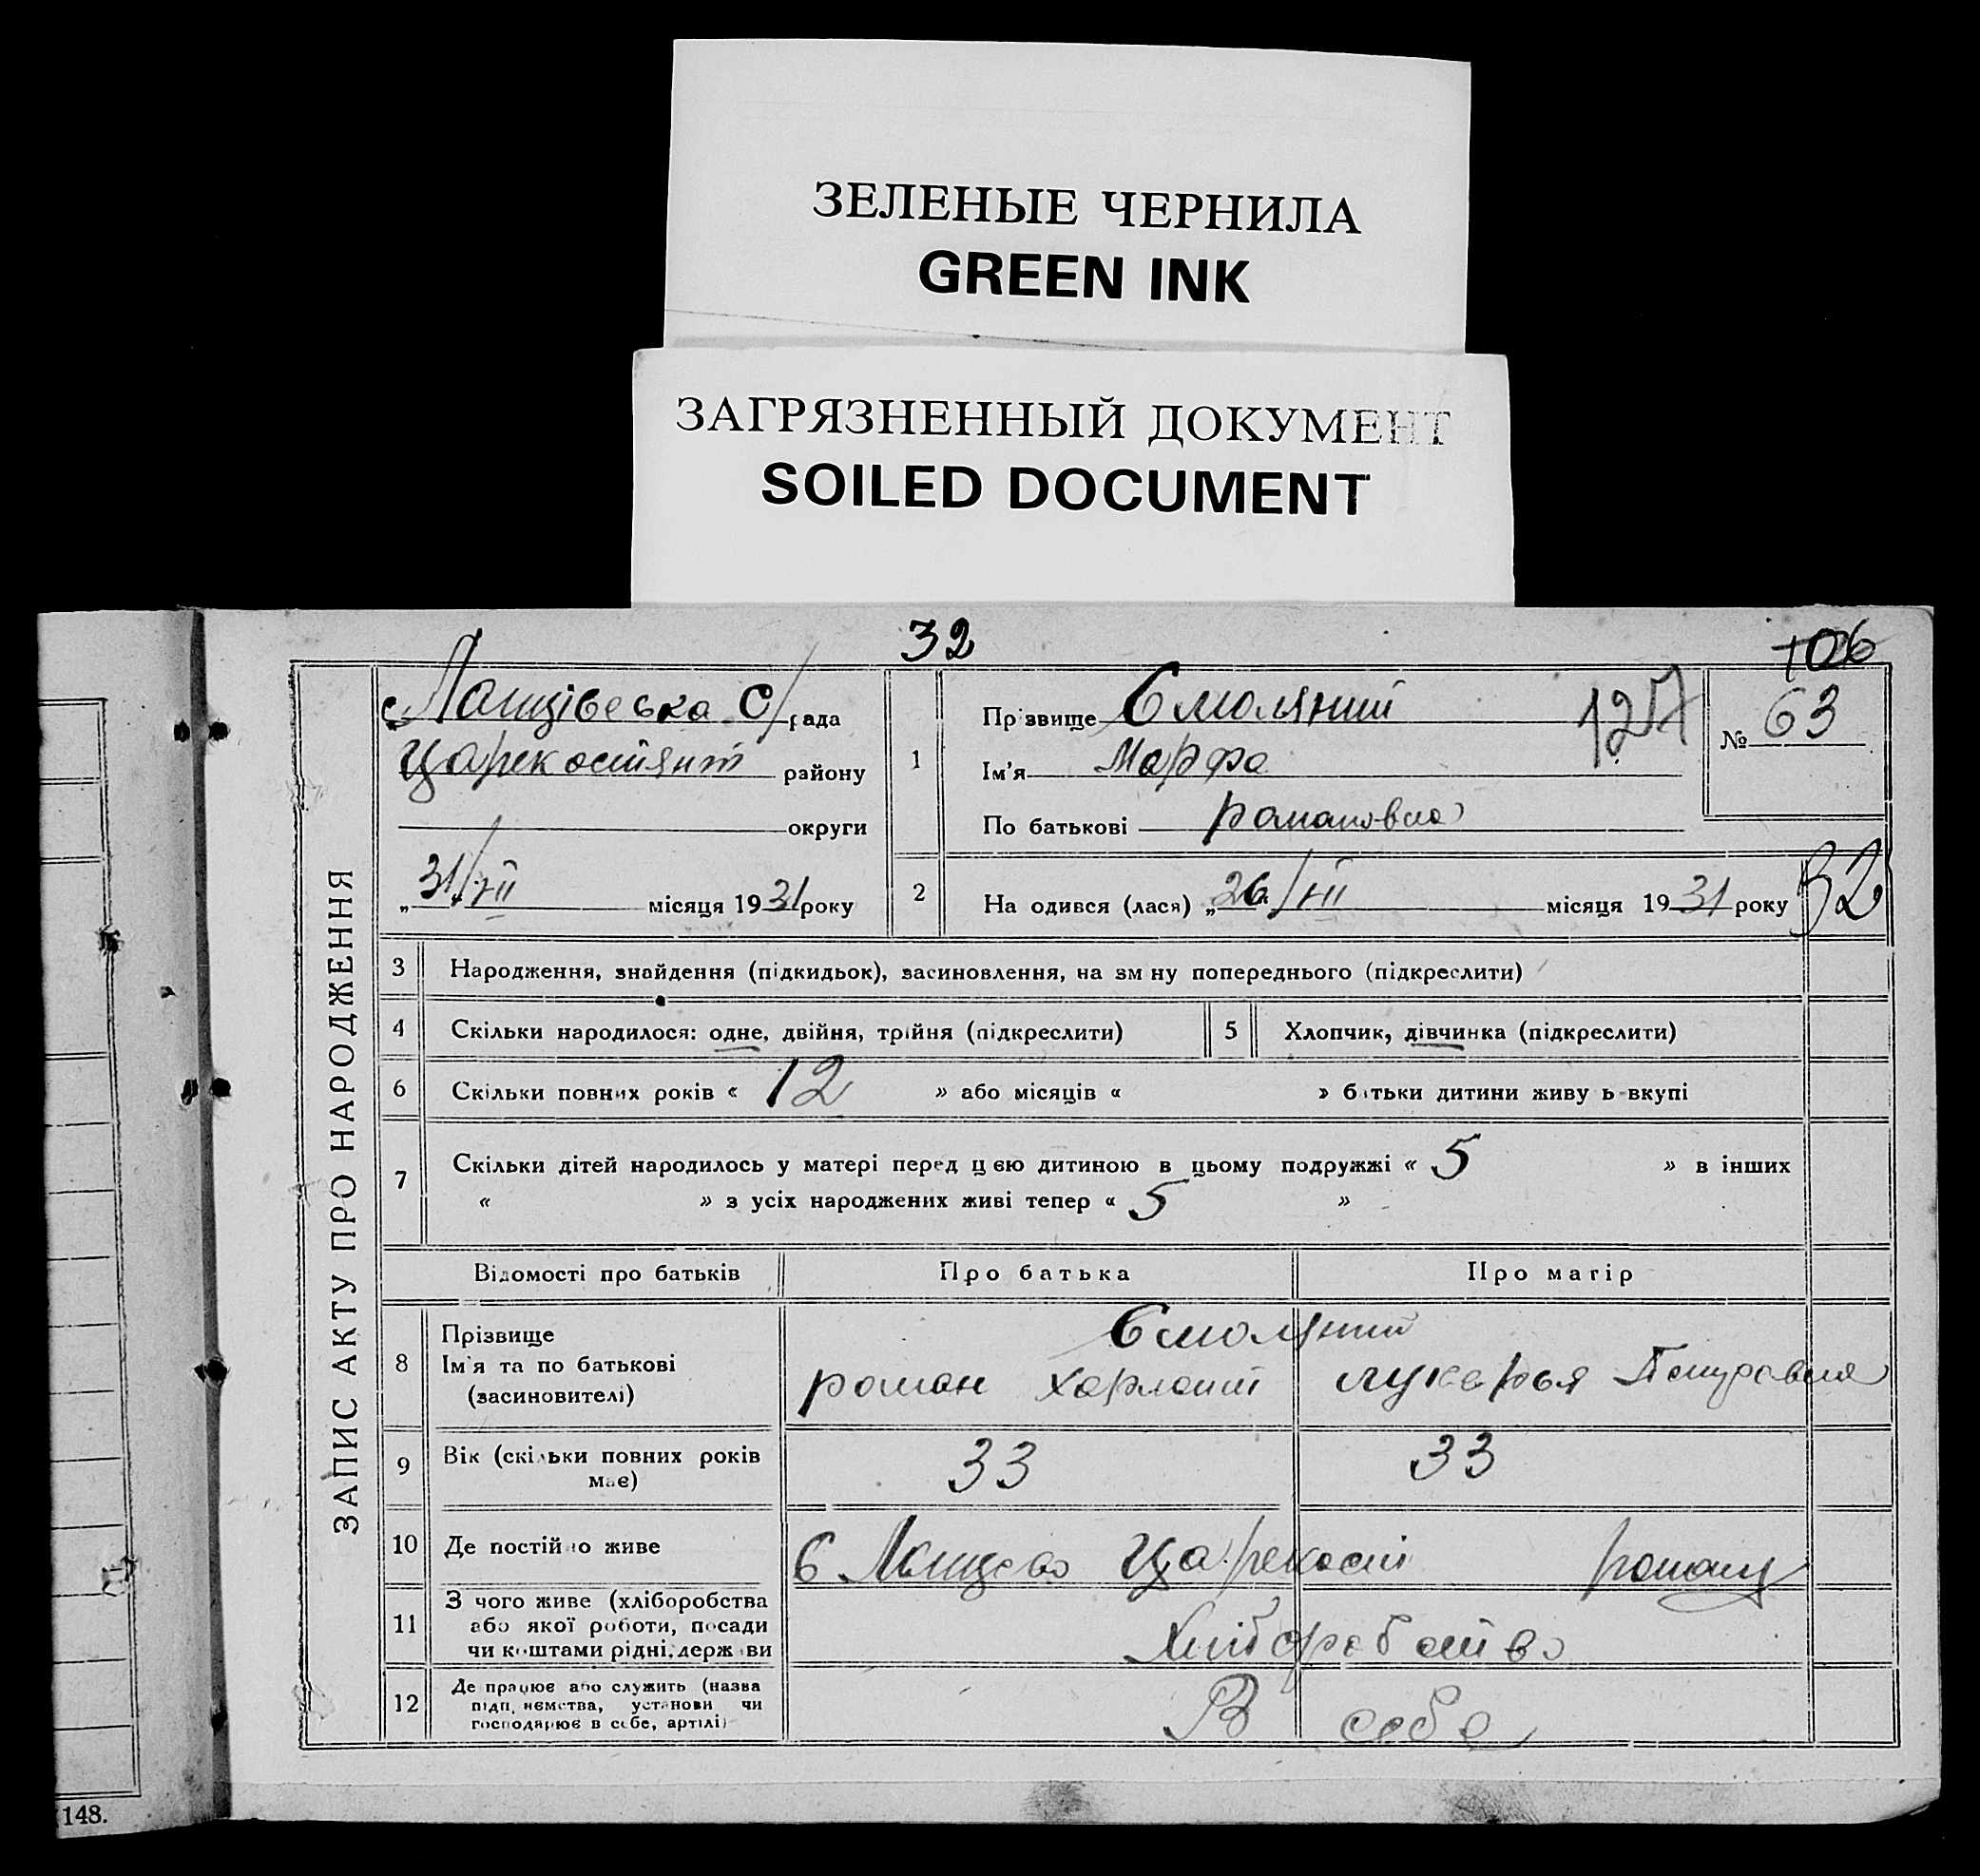 ЗЕЛЕНЫЕ ЧЕРНИЛА
GREEN INK
ЗАГРЯЗНЕННЫЙ ДОКУМЕНТ
SOILED DOCUMENT
32
106
ЗАПИС АКТУ ПРО НАРОДЖЕННЯ
с/рада
району
округи
„31/VII місяця 1931 року
1
Прізвище Смоляний
Ім'я Марфа
По батькові романовна
127
№ 63
2
На одився (лася) „26/VII місяця 1931 року
32
3 Народження, знайдення (підкидьок), засиновлення, на зм ну попереднього (підкреслити)
4 Скільки народилося: одне, двійня, трійня (підкреслити)
5 Хлопчик, дівчинка (підкреслити)
6 Скільки повних років « 12 » або місяців « » б тьки дитини живу ь вкупі
7 Скільки дітей народилось у матері перед цею дитиною в цьому подружжі « 5 » в інших
« » з усіх народжених живі тепер « 5 »
Відомості про батьків
Про батька
Про матір
8 Прізвище
Ім'я та по батькові
(засиновителі)
Смоляний
роман Харлом
лукерья
9 Вік (скільки повних років
має)
33
33
10 Де постійно живе
С Лащево Царекост
11 З чого живе (хліборобства
або якої роботи, посади
чи коштами рідні, держ ви
Хлібробство
12 Де працює або служить (назва
підп. немства, установи чи
господарює в себе, артілі)
В себе
148.